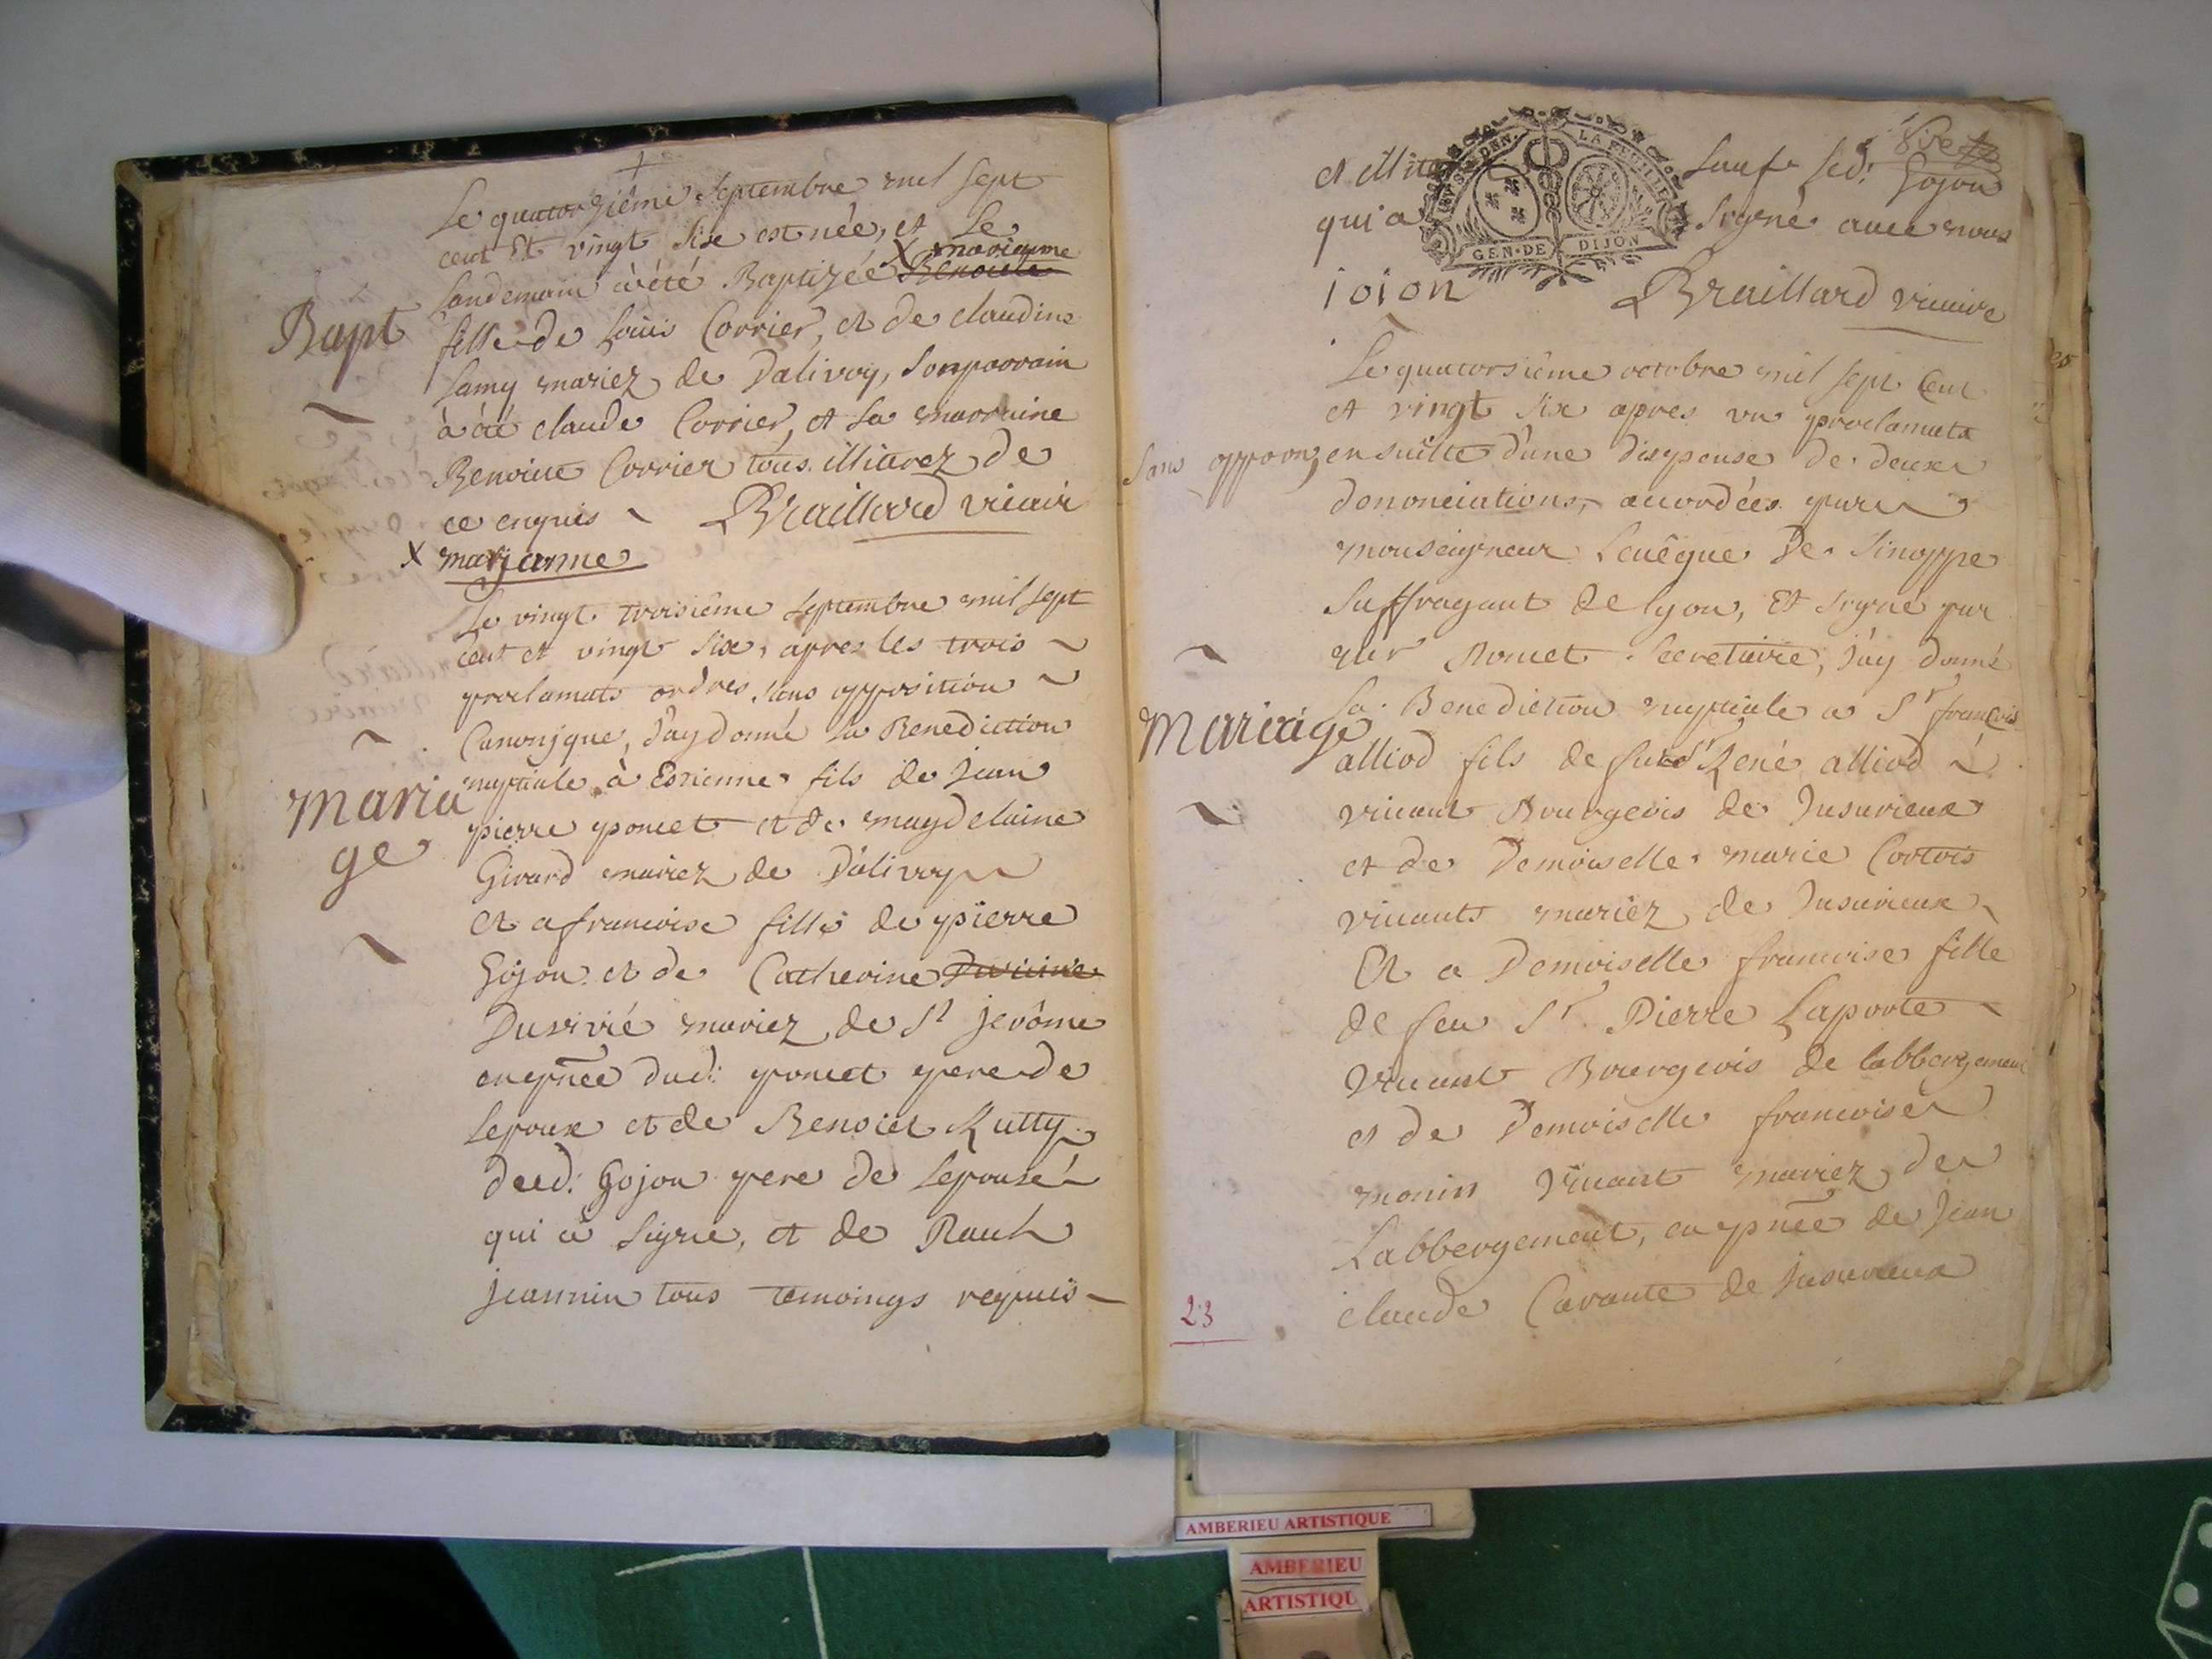 Le quatorzième Septembre mil sept
cent Et vingt Six est née, et Le
X marianne
landemain à été Baptizée Benoite
Bapt
fille de Loüis Corrier, et de claudine
Lamy mariez de Dalivoy, Son parrain
à été claude Corrier, et Sa marraine
Benoite Corrier tous illiterez de
ce enquis Braillard vicair
X marianne
Le vingt troisième Septembre mil sept
cent et vingt Six, apres les trois
proclamats ordres Sans opposition
Canonique, J'ay donné la Benediction
nuptiale à Estienne fils de Jean
Maria
ge
pierre poncet et de magdelaine
Girard mariez de Dalivoy
Et a francoise fille de pierre
Gojon et de Catherine
Duvivié mariez de St jerôme
en pñce dud: poncet pere de
Lepoux et de Benoiet Rutty
dud: Gojon pere de Lepouse
qui à Signe, et de
jeannin tous temoings requis
et illite Sauf led: Gojon
qui a Signé avec nous
LA FEUILLE
GEN. DE DIJON
ioion Braillard vicaire
Le quatorsième octobre mil sept Cent
et vingt Six apres un proclamats
Sans oppoon, en suitte d'une dispense de deux
denonciations, accordées par
monseigneur Leuêque De Sinoppe
Suffragant de lyon, Et Signé par
Secretaire, J'ay donné
La Benediction nuptiale a Sr francois
Mariage
alliod fils de feu Sr René alliod
vivant Bourgeois de Jusurieux
et de Demoiselle marie Cortois
vivants mariez de Jusurieux
Et a Demoiselle francoise fille
de feu Sr Pierre Laporte
Vivant Bourgeois de labbergement
et de Demoiselle francoise
monin Vivant mariez de
Labbergement, en pñce de Jean
claude Carante de Jusurieux
23
AMBERIEU ARTISTIQUE
AMBERIEU
ARTISTIQU